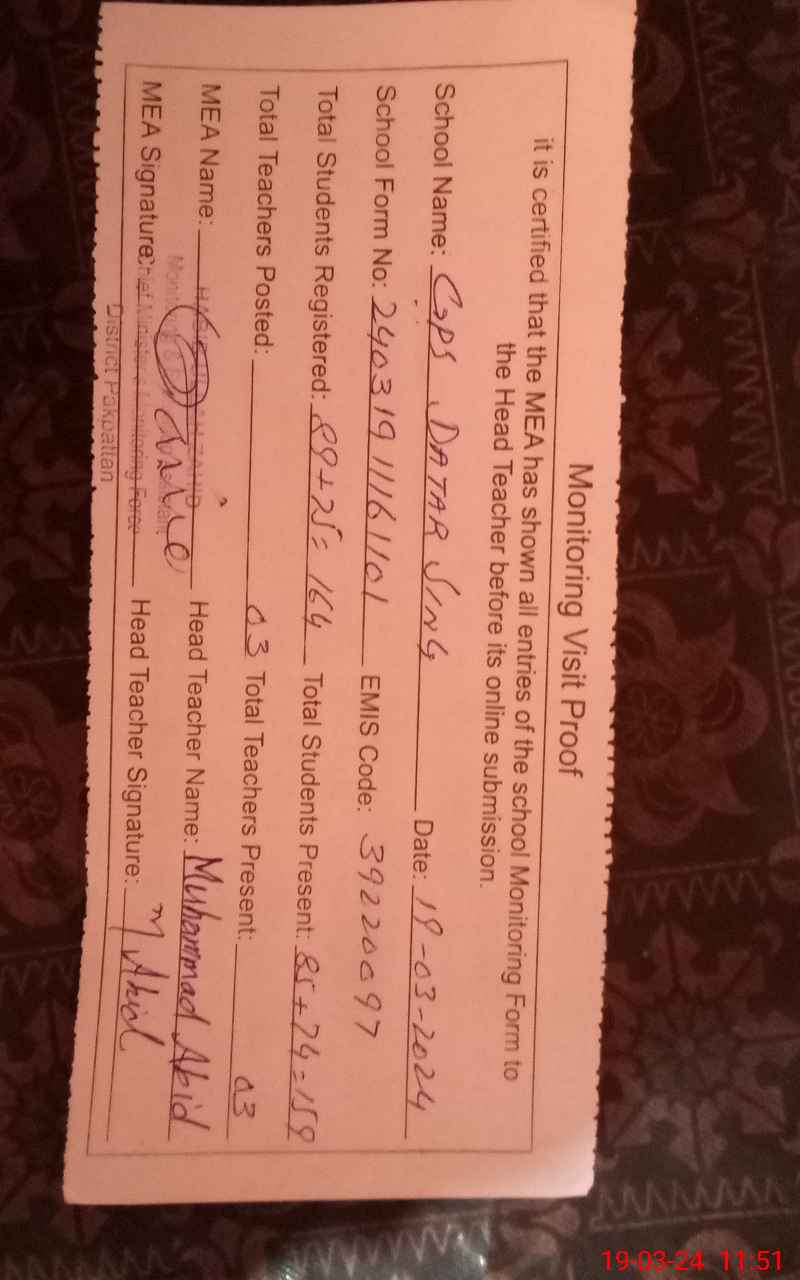 Monitoring Visit Proof
it is certified that the MEA has shown all entries of the school Monitoring Form to
the Head Teacher before its online submission.
School Name: GPS DATAR SING Date: 19-03-2024
School Form No: 2403191116 1101 EMIS Code: 39220097
Total Students Registered: 89+75= 164 Total Students Present: 85+74=159
Total Teachers Posted: 03 Total Teachers Present: 03
MEA Name: Head Teacher Name: Muhammad Abid
MEA Signature: Head Teacher Signature: M Abid
Chief Minister's Monitoring Force
District Pakpattan
19-03-24 11:51